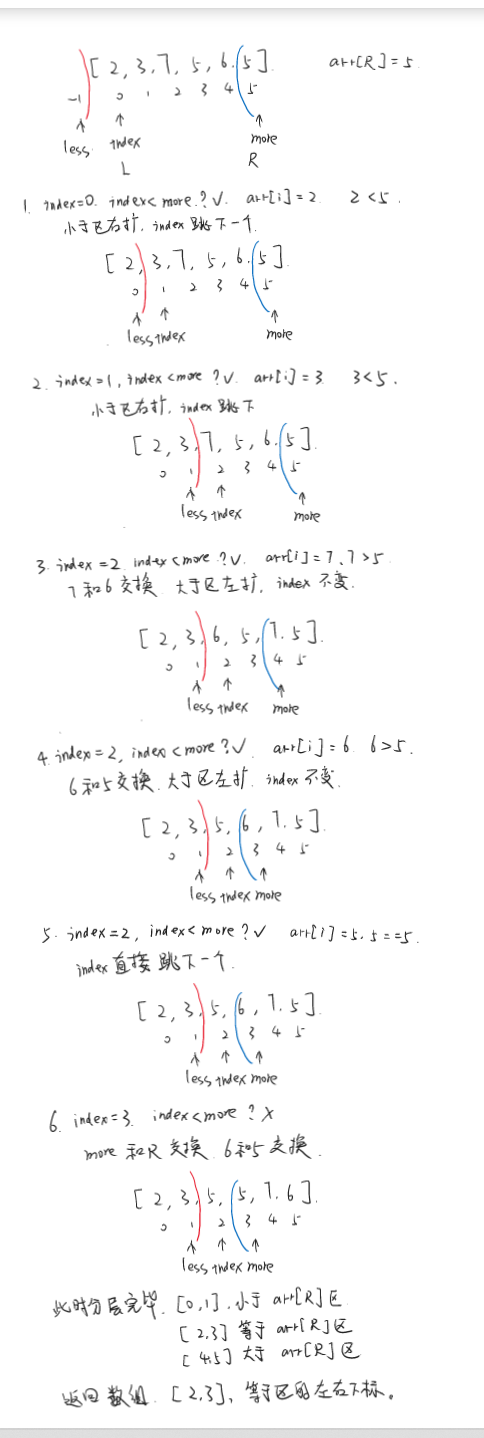 [ 2, 3, 7, 5, 6, 5 ]. arr[R] = 5
-1 0 1 2 3 4 5
less index more
L R
1. index=0. index< more ? √. arr[i] = 2 2 < 5.
小于区右扩, index 跳下一个.
[ 2, 3, 7, 5, 6, 5 ].
0 1 2 3 4 5
less index more
2. index=1, index<more ? √. arr[i] = 3 3<5.
小于区右扩, index 跳下
[ 2, 3, 7, 5, 6, 5 ].
0 1 2 3 4 5
less index more
3. index =2 index<more ? √. arr[i] = 7, 7 >5.
7 和 6 交换 大于区左扩, index 不变.
[ 2, 3, 6, 5, 7, 5 ].
0 1 2 3 4 5
less index more
4. index = 2, index<more ? √ arr[i] = 6 6 >5.
6 和 5 交换 大于区左扩, index 不变.
[ 2, 3, 5, 6, 7, 5 ].
0 1 2 3 4 5
less index more
5. index=2, index< more ? √ arr[i] = 5, 5 ==5.
index 直接跳下一个.
[ 2, 3, 5, 6, 7, 5 ].
0 1 2 3 4 5
less index more
6. index=3. index<more ? X
more 和 R 交换 6 和 5 交换.
[ 2, 3, 5, 5, 7, 6 ].
0 1 2 3 4 5
less index more
此时分层完毕. [0,1], 小于 arr[R] 区
[ 2,3] 等于 arr[R] 区
[ 4,5] 大于 arr[R] 区
返回数组. [ 2,3], 等于区的左右下标。